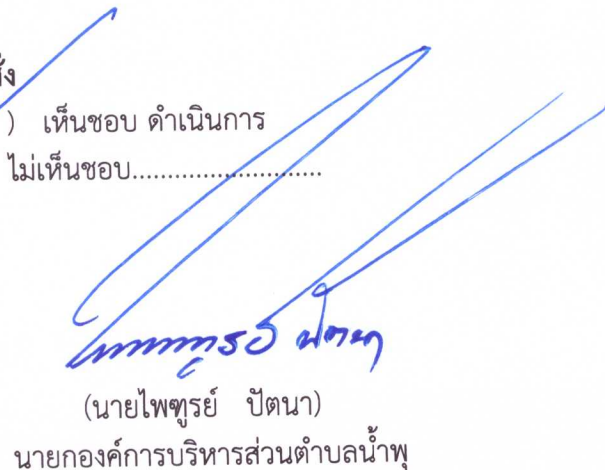 สั่ง
) เห็นชอบ ดำเนินการ
ไม่เห็นชอบ...........................
ปัตนา
(นายไพฑูรย์ ปัตนา)
นายกองค์การบริหารส่วนตำบลน้ำพุ